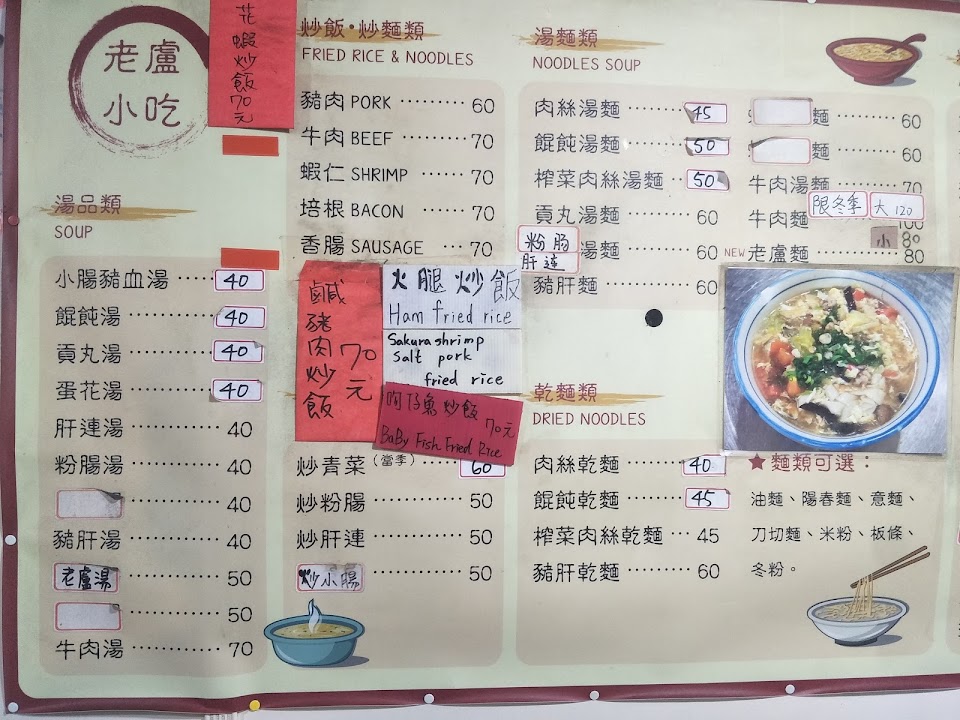 老盧
小吃
花蝦炒飯70元
湯品類
SOUP
小腸豬血湯 ····· 40
餛飩湯 ········· 40
貢丸湯 ········· 40
蛋花湯 ········· 40
肝連湯 ············ 40
粉腸湯 ············ 40
············ 40
豬肝湯 ············ 40
老盧湯 ············ 50
············ 50
牛肉湯 ············ 70
炒飯·炒麵類
FRIED RICE & NOODLES
豬肉 PORK ········· 60
牛肉 BEEF ········ 70
蝦仁 SHRIMP ······ 70
培根 BACON ······ 70
香腸 SAUSAGE ··· 70
鹹豬肉炒飯
70元
火腿炒飯
Ham fried rice
Sakura shrimp
Salt pork
fried rice
魩仔魚炒飯 70元
BaBy Fish Fried Rice
炒青菜(當季)···· 60
炒粉腸 ············ 50
炒肝連 ············ 50
炒小腸 ············ 50
湯麵類
NOODLES SOUP
肉絲湯麵 ······· 45
餛飩湯麵 ······· 50
榨菜肉絲湯麵 ·· 50
貢丸湯麵 ········ 60
粉腸
肝連
湯麵 ········ 60
豬肝麵 ··········· 60
麵 ········· 60
麵 ········· 60
牛肉湯麵 ········ 70
限冬季
大 120
牛肉麵 100
小 80
NEW 老盧麵 ········· 80
乾麵類
DRIED NOODLES
肉絲乾麵 ······· 40
餛飩乾麵 ······· 45
榨菜肉絲乾麵 ··· 45
豬肝乾麵 ········ 60
★ 麵類可選：
油麵、陽春麵、意麵、
刀切麵、米粉、板條、
冬粉。